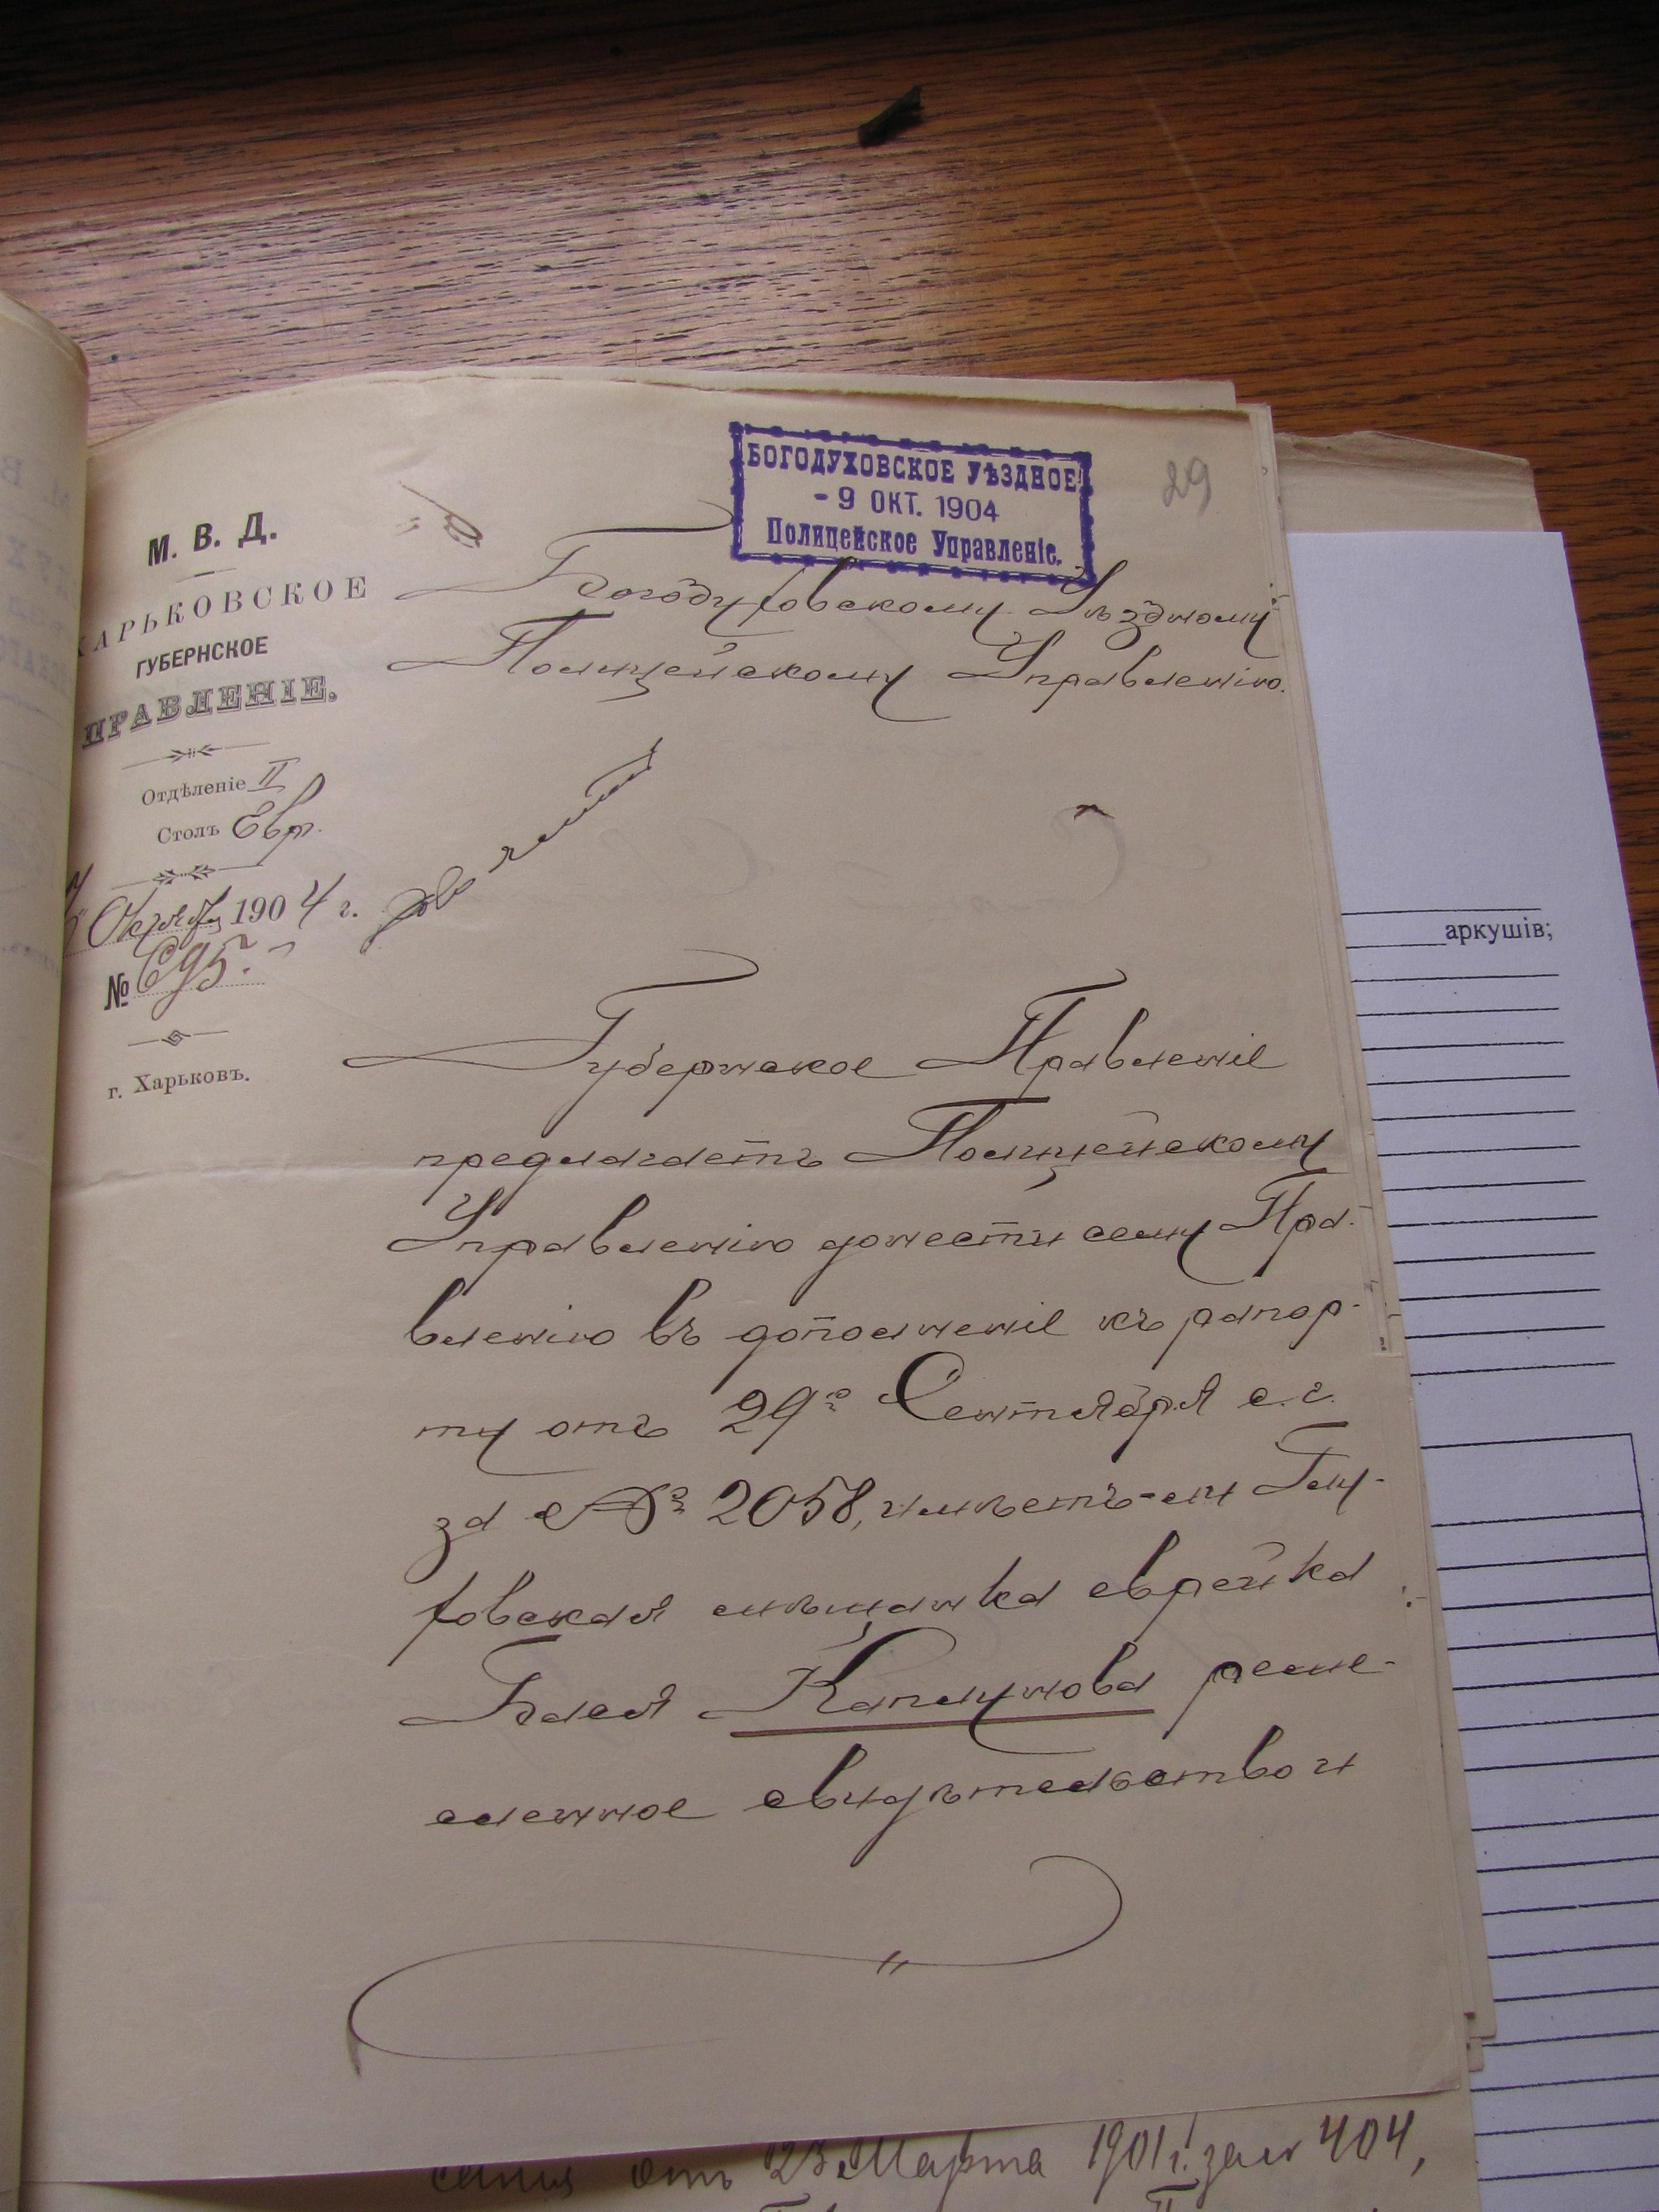 БОГОДУХОВСКОЕ УѢЗДНОЕ
- 9 ОКТ. 1904
Полицейское Управленіе.
29
М. В. Д.
ХАРЬКОВСКОЕ
ГУБЕРНСКОЕ
ПРАВЛЕНІЕ.
Отдѣленіе II
Столъ Евр.
Октября 1904 г.
№ 695.
г. Харьковъ.
Богодуховскому Уѣздному
Полицейскому Управленію.
Губернское Правленіе
предлагаетъ Полицейскому
Управленію донести сему Пра-
вленію въ дополненіе къ рапор-
ту отъ 29го Сентября с. г.
за № 2058, имѣетъ-ли Глу-
ховская мѣщанка еврейка
Бася Каплунова реме-
сленное свидѣтельство и
отъ 23 Марта 1901 г. за № 404,
аркушів;